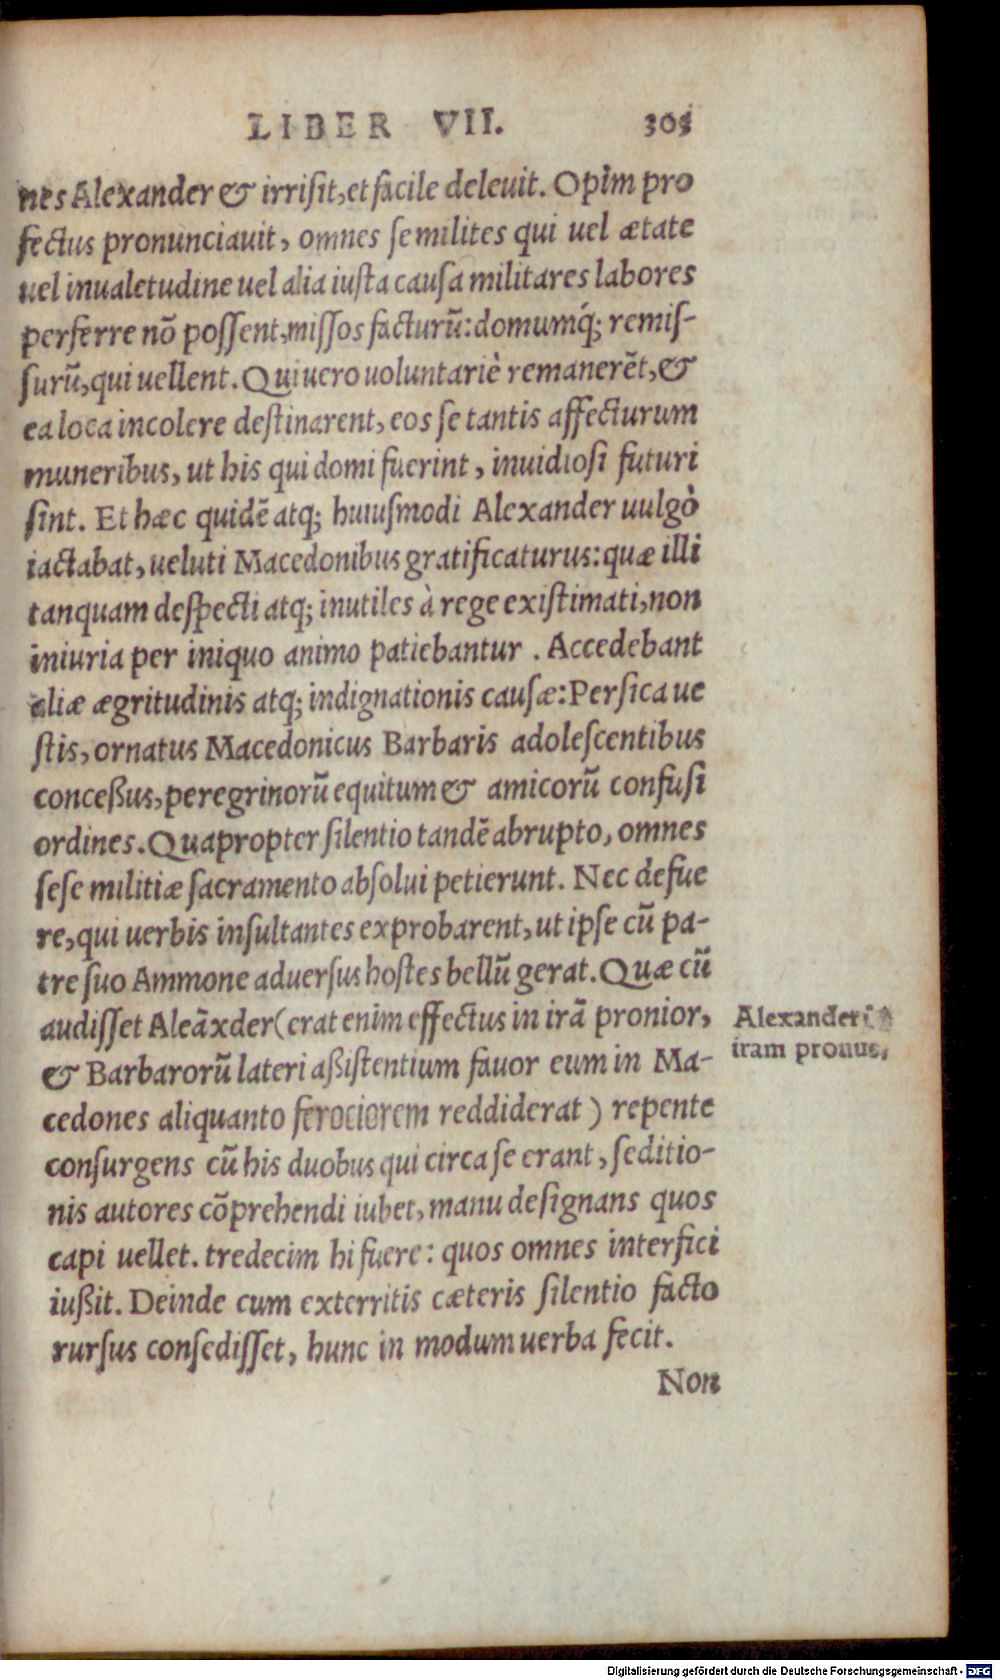 LIBER VII. 305
nes Alexander & irrisit, et facile deleuit. Opim pro
fectus pronunciauit, omnes se milites qui uel ætate
uel inualetudine uel alia iusta causa militares labores
perferre nō possent, missos facturū: domumq́; remis-
surū, qui uellent. Qui uero uoluntariè remanerēt, &
ea loca incolere destinarent, eos se tantis affecturum
muneribus, ut his qui domi fuerint, inuidiosi futuri
sint. Et hæc quidē atq; huiusmodi Alexander uulgò
iactabat, ueluti Macedonibus gratificaturus: quæ illi
tanquam despecti atq; inutiles à rege existimati, non
iniuria per iniquo animo patiebantur. Accedebant
aliæ ægritudinis atq; indignationis causæ: Persica ue
stis, ornatus Macedonicus Barbaris adolescentibus
conceßus, peregrinorū equitum & amicorū confusi
ordines. Quapropter silentio tandē abrupto, omnes
sese militiæ sacramento absolui petierunt. Nec defue
re, qui uerbis insultantes exprobarent, ut ipse cū pa-
tre suo Ammone aduersus hostes bellū gerat. Quæ cū
audisset Aleāxder (erat enim effectus in irā pronior,
& Barbarorū lateri aßistentium fauor eum in Ma-
cedones aliquanto ferociorem reddiderat) repente
consurgens cū his duobus qui circa se erant, seditio-
nis autores cōprehendi iubet, manu designans quos
capi uellet. tredecim hi fuere: quos omnes interfici
iußit. Deinde cum exterritis cæteris silentio facto
rursus consedisset, hunc in modum uerba fecit.
Non
Alexander
iram pronus,
Digitalisierung gefördert durch die Deutsche Forschungsgemeinschaft - DFG